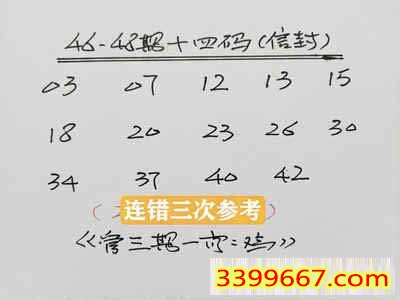 46-48期十四码(信封)
03 07 12 13 15
18 20 23 26 30
34 37 40 42
连错三次参考
《管三期一肖:鸡》
3399667.com